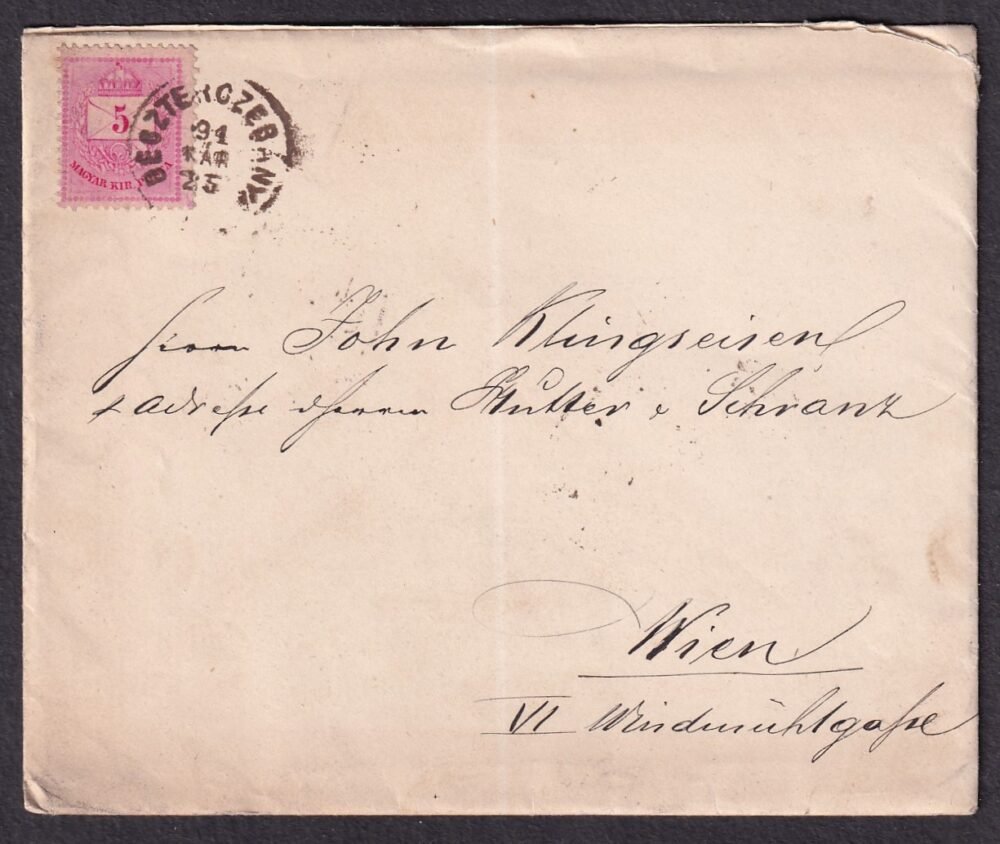 5
MAGYAR KIR. POSTA
BESZTERCZEBÁNYA
94
MÁR
23
Herrn John Klingseisen
p adresse d Herren Hutter & Schranz
Wien
VI Windmühlgasse